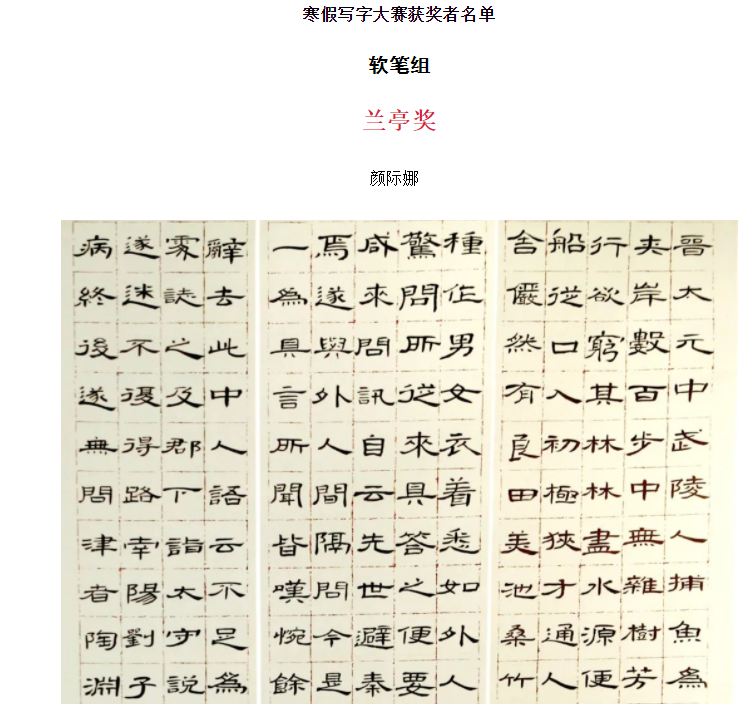 寒假写字大赛获奖者名单
软笔组
兰亭奖
颜际娜
晉太元中武陵人捕魚為
夾岸數百步中無雜樹芳
行欲窮其林林盡水源便
船從口入初極狹才通人
舍儼然有良田美池桑竹
種作男女衣着悉如外人
驚問所從來具答之便要
咸來問訊自云先世避秦
焉遂與外人間隔問今是
一為具言所聞皆嘆惋餘
辭去此中人語云不足為
處誌之及郡下詣太守說
遂迷不復得路南陽劉子
病終後遂無問津者陶淵